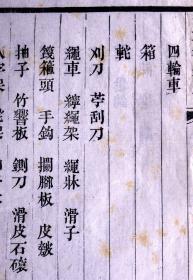 四輪車
箱
䡊
刈刀　苧刮刀
繩車　紼繩架　繩牀　滑子
筏籠頭　手鈎　攔腳板　皮皴
抽子　竹響板　鍘刀　滑皮石磙